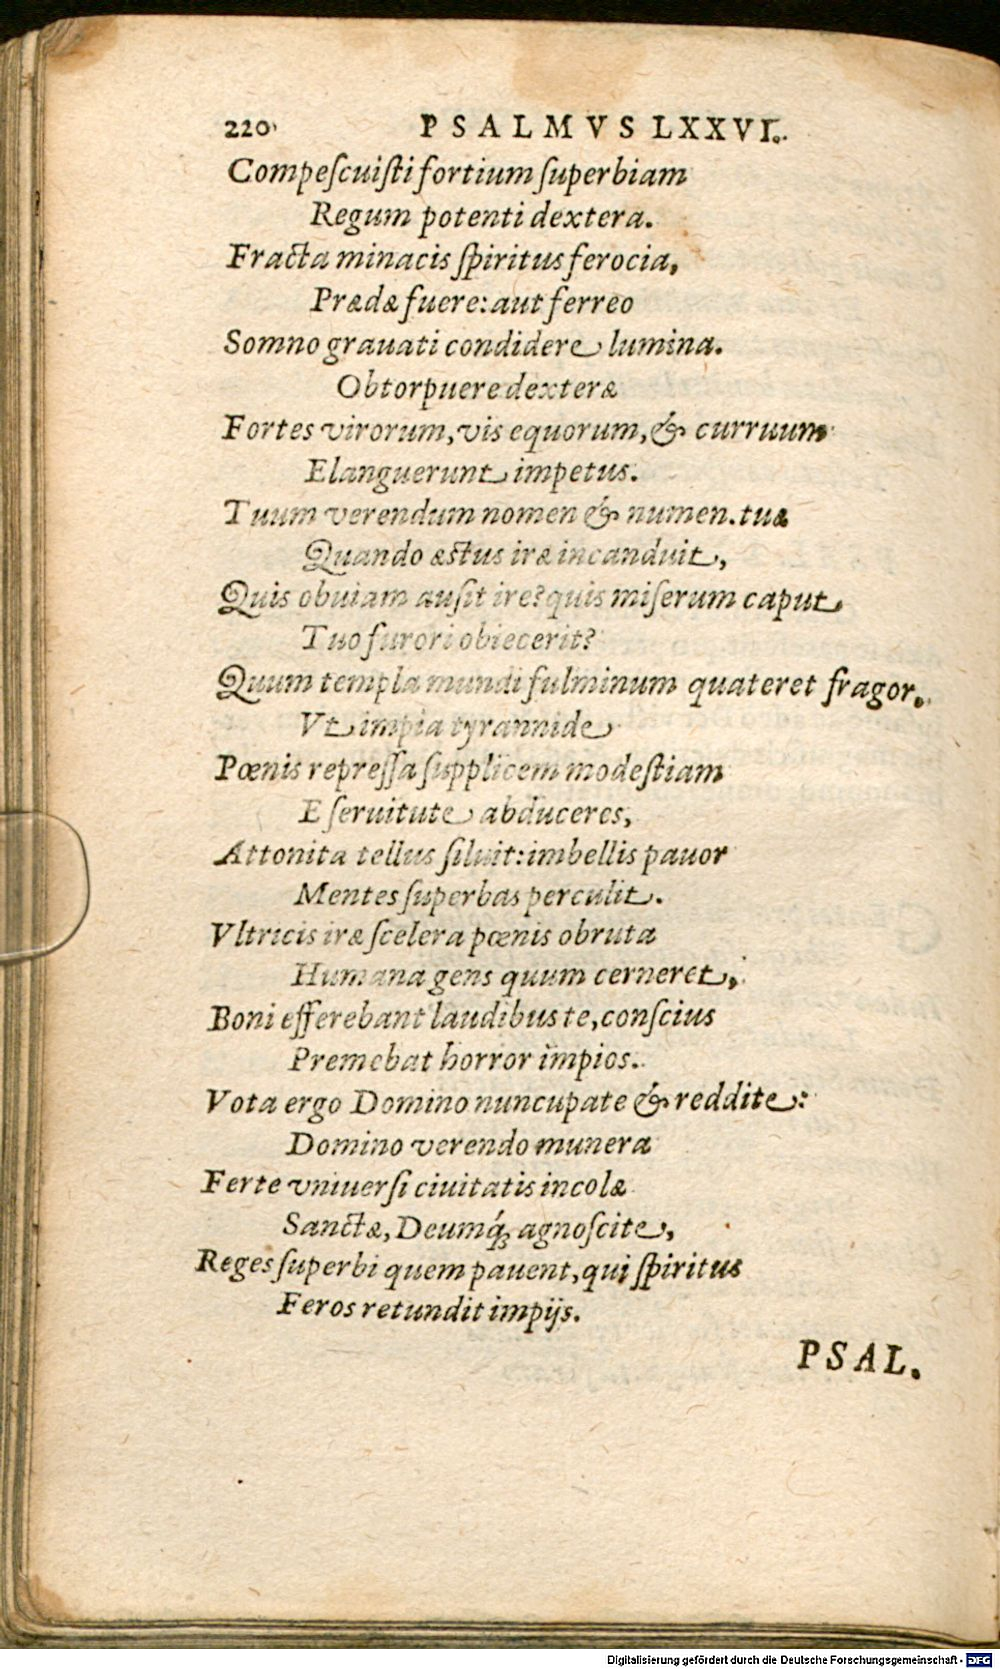 220 PSALMVS LXXVI.
Compeſcuiſti fortium ſuperbiam
Regum potenti dextera.
Fracta minacis ſpiritus ferocia,
Prædæ fuere: aut ferreo
Somno grauati condidere lumina.
Obtorpuere dexteræ
Fortes virorum, vis equorum, & curruum
Elanguerunt impetus.
Tuum verendum nomen & numen. tuæ
Quando æstus iræ incanduit,
Quis obuiam auſit ire? quis miſerum caput
Tuo furori obiecerit?
Quum templa mundi fulminum quateret fragor.
Vt impia tyrannide
Pœnis repreſſa ſupplicem modeſtiam
E ſeruitute abduceres,
Attonita tellus ſiluit: imbellis pauor
Mentes ſuperbas perculit.
Vltricis iræ ſcelera pœnis obruta
Humana gens quum cerneret,
Boni efferebant laudibus te, conſcius
Premebat horror impios.
Vota ergo Domino nuncupate & reddite:
Domino verendo munera
Ferte vniuerſi ciuitatis incolæ
Sanctæ, Deumq́; agnoſcite,
Reges ſuperbi quem pauent, qui ſpiritus
Feros retundit impijs.
PSAL.
Digitalisierung gefördert durch die Deutsche Forschungsgemeinschaft - DFG